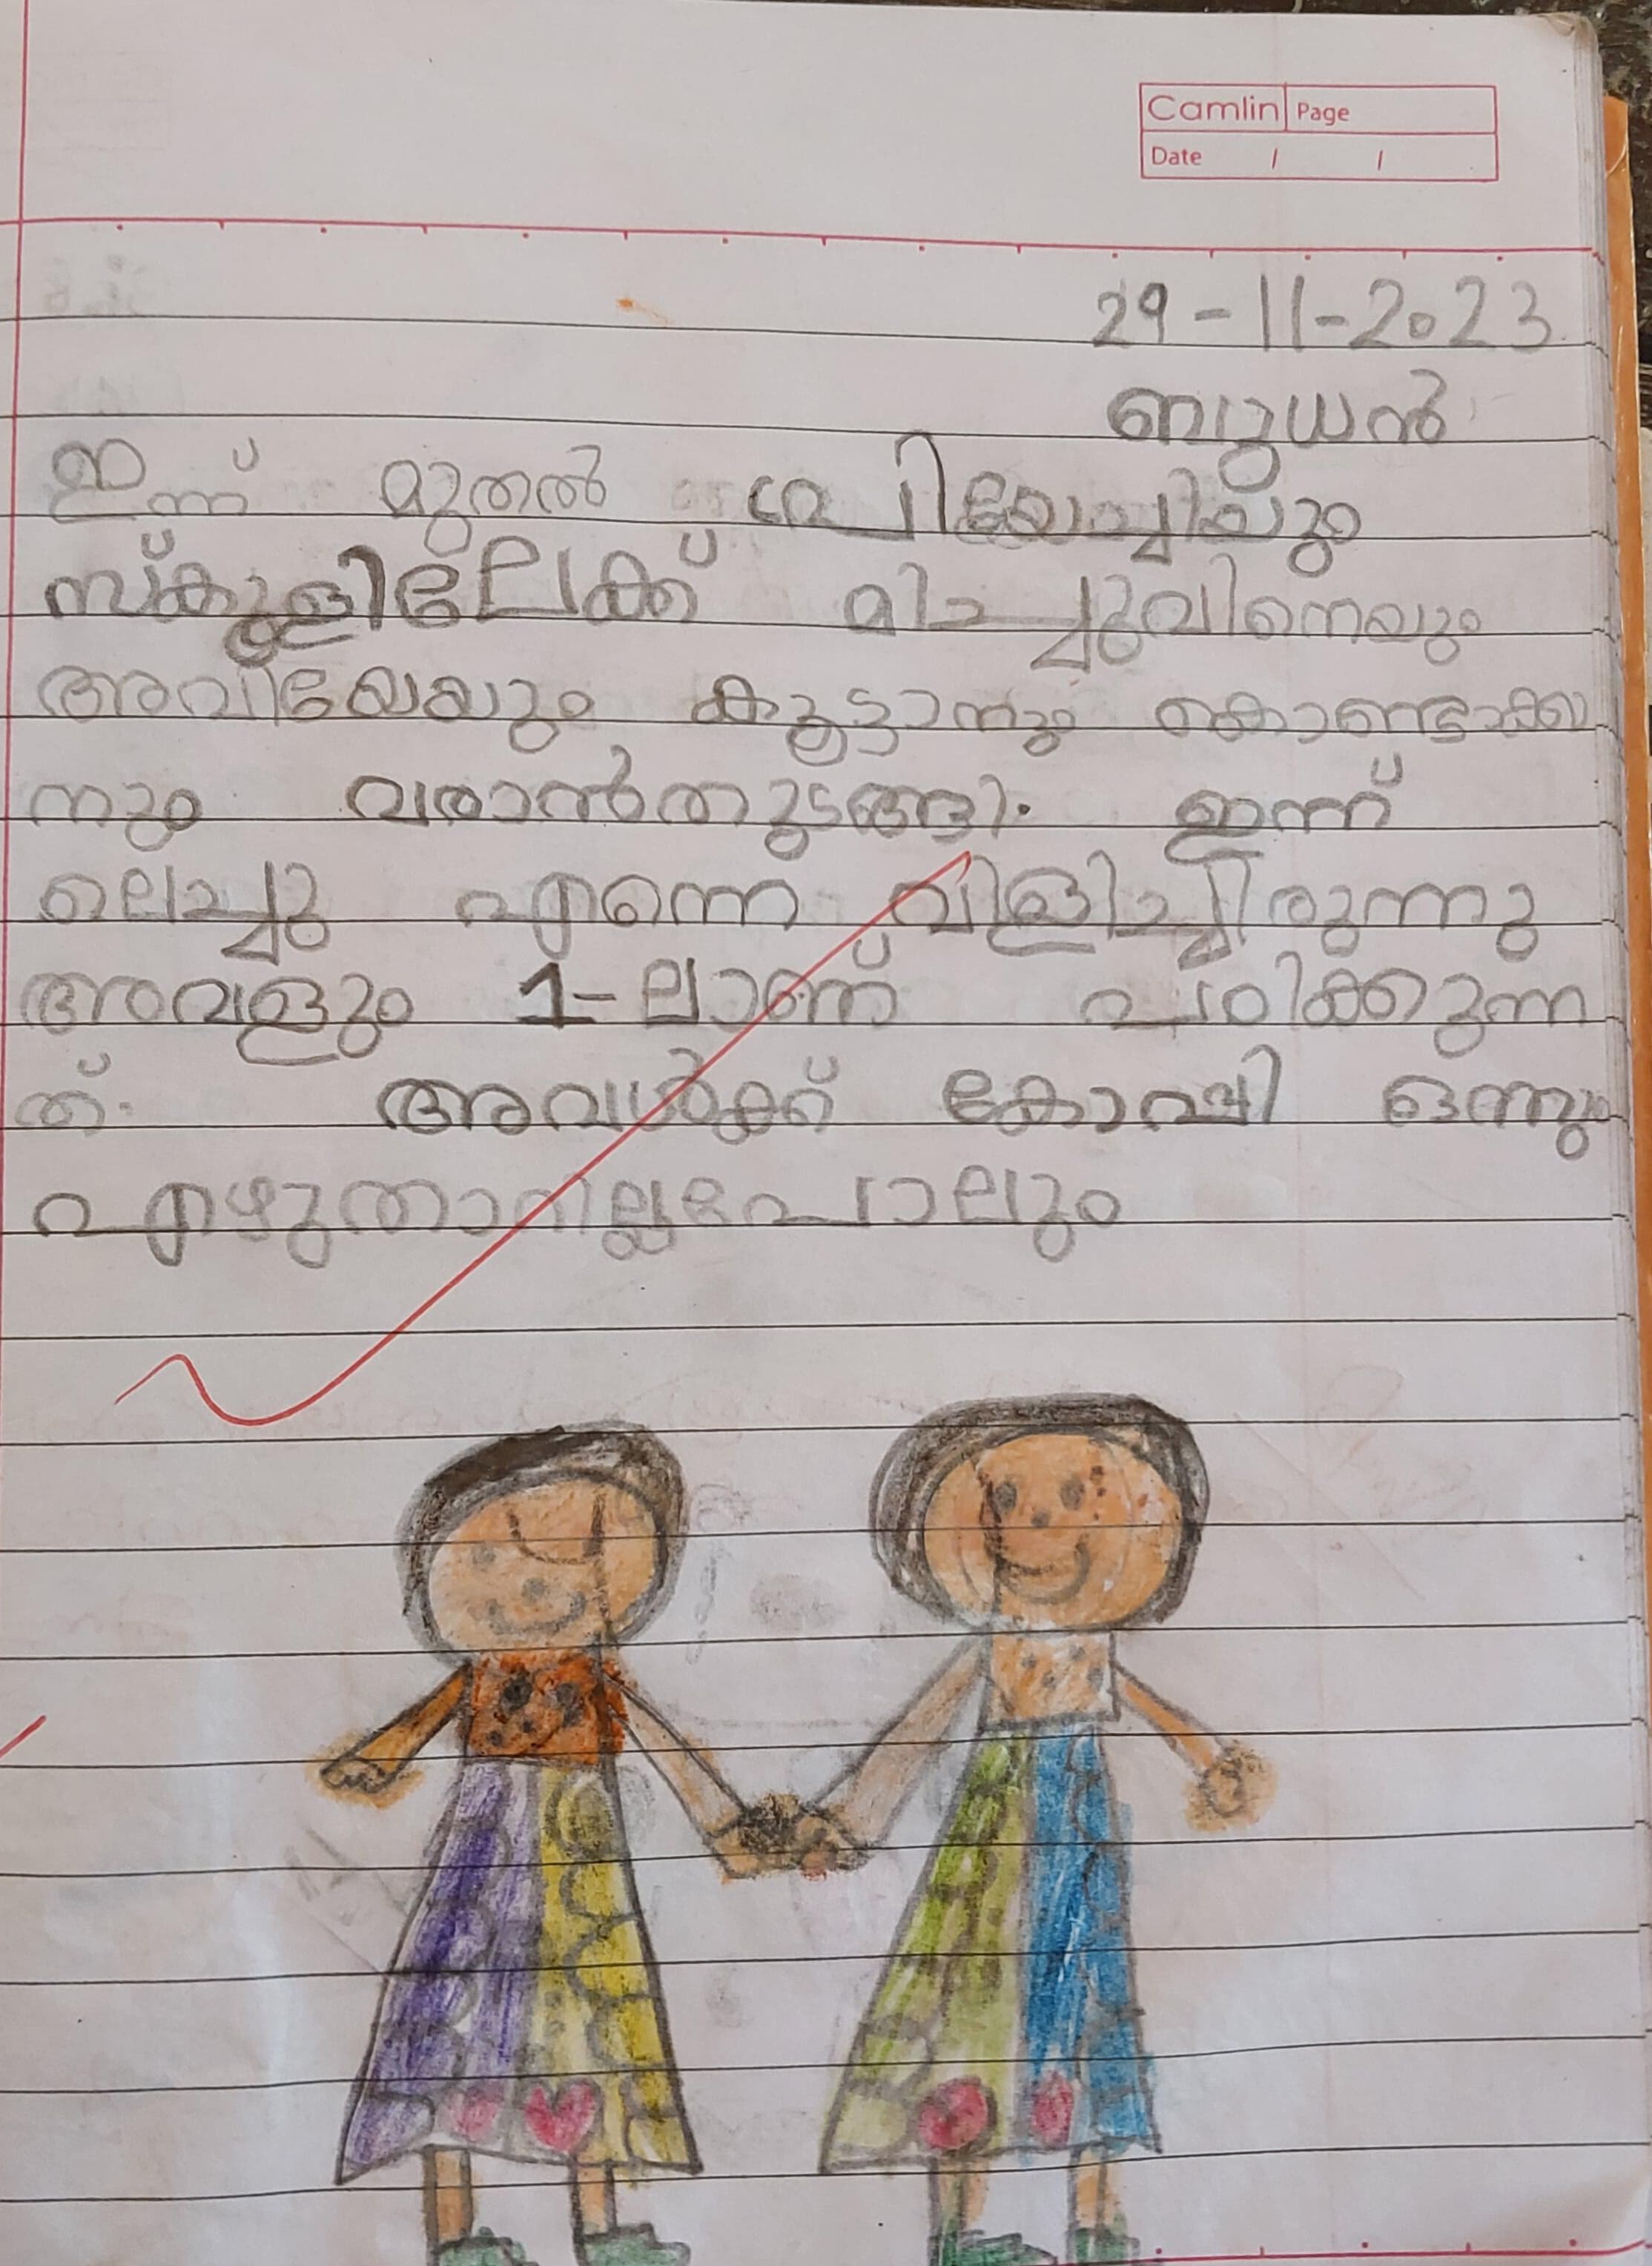 Camlin Page
Date / /
29-11-2023
ബുധൻ
ഇന്ന് മുതൽ പ്രിയേച്ചിയും
സ്കൂളിലേക്ക് മിച്ചുവിനെയും
അവിയേയും കൂട്ടാനും കൊണ്ടാക്കാ
നും വരാൻതുടങ്ങി. ഇന്ന്
ലെച്ചു എന്നെ വിളിച്ചിരുന്നു
അവളും 1-ലാണ് പഠിക്കുന്ന
ത്. അവൾക്ക് കോപ്പി ഒന്നും
എഴുതാനില്ലപോലും